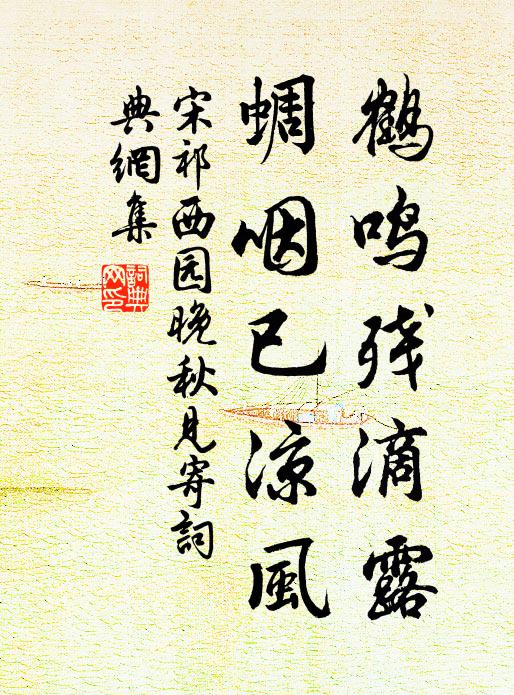 鹤鸣残滴露
蜩咽已凉风
宋祁西园晚秋见寄詞
典網集
詞典网印